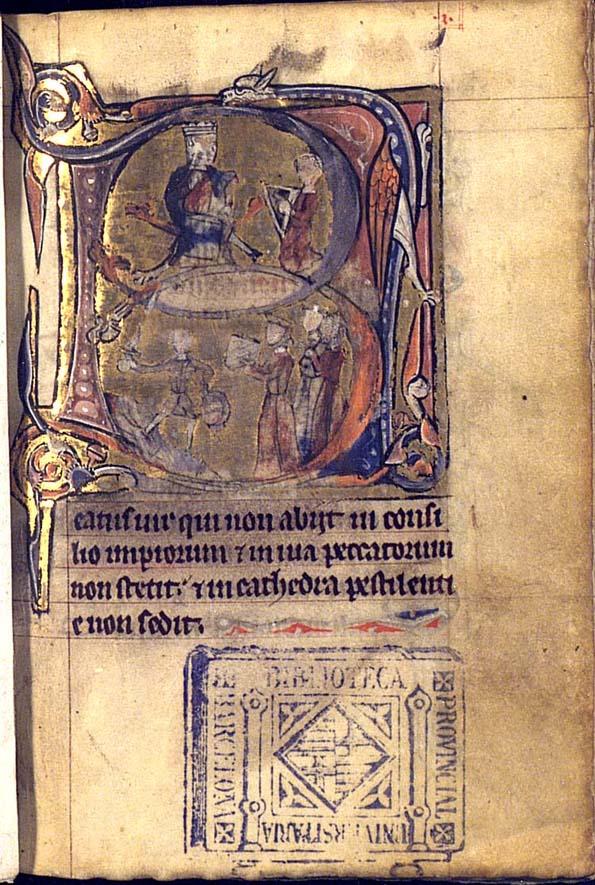 eatus uir qui non abijt in consi
lio impiorum ⁊ in uia peccatorum
non stetit: ⁊ in cathedra pestilenti
e non sedit:
BIBLIOTECA
PROVINCIAL
UNIVERSITARIA
BARCELONA